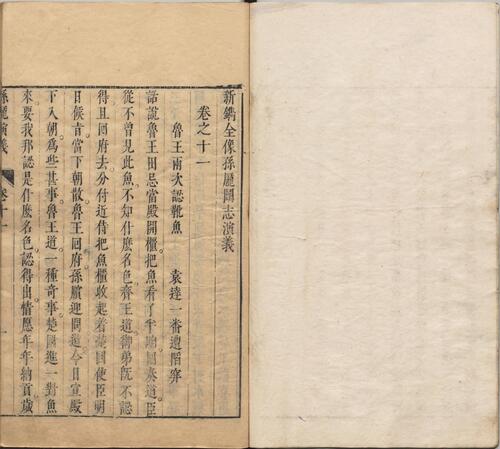 新鐫全像孫龐鬪志演義
卷之十一
魯王兩次認靴魚 袁達一番遭陷穽
話說魯王田忌當殿開櫃把魚看了半晌回奏道臣
從不曾見此魚不知什麼名色齊王道御弟既不認
得且回府去分付近侍把魚櫃收起着楚國使臣明
日候旨當下朝散魯王回府孫臏迎問道今日宣殿
下入朝爲些甚事魯王道一種奇事楚國進一對魚
來要我邦認是什麼名色認得出情愿年年納貢歲
孫龐演義 卷十一 一